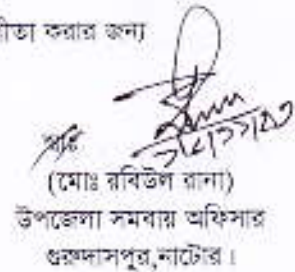 করার জন্য
(মোঃ রবিউল রানা)
উপজেলা সমবায় অফিসার
গুরুদাসপুর,নাটোর।